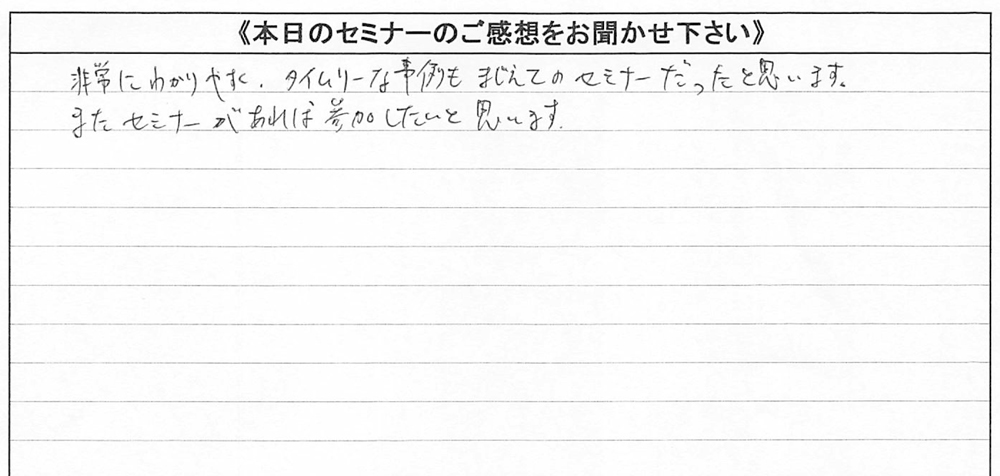 《本日のセミナーのご感想をお聞かせ下さい》
非常にわかりやすく、タイムリーな事例もまじえてのセミナーだったと思います。
またセミナーがあれば参加したいと思います。